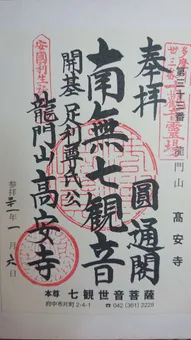 奉拝
多摩川三十三番観音霊場
第三十三番
龍門山
高安寺
圓通閣
南無七觀音
開基 足利尊氏公
安國利生
龍門山高安寺
参拝 一月六日
本尊 七観世音菩薩
府中市片町2-4-1 ☎ 042 (361) 3228